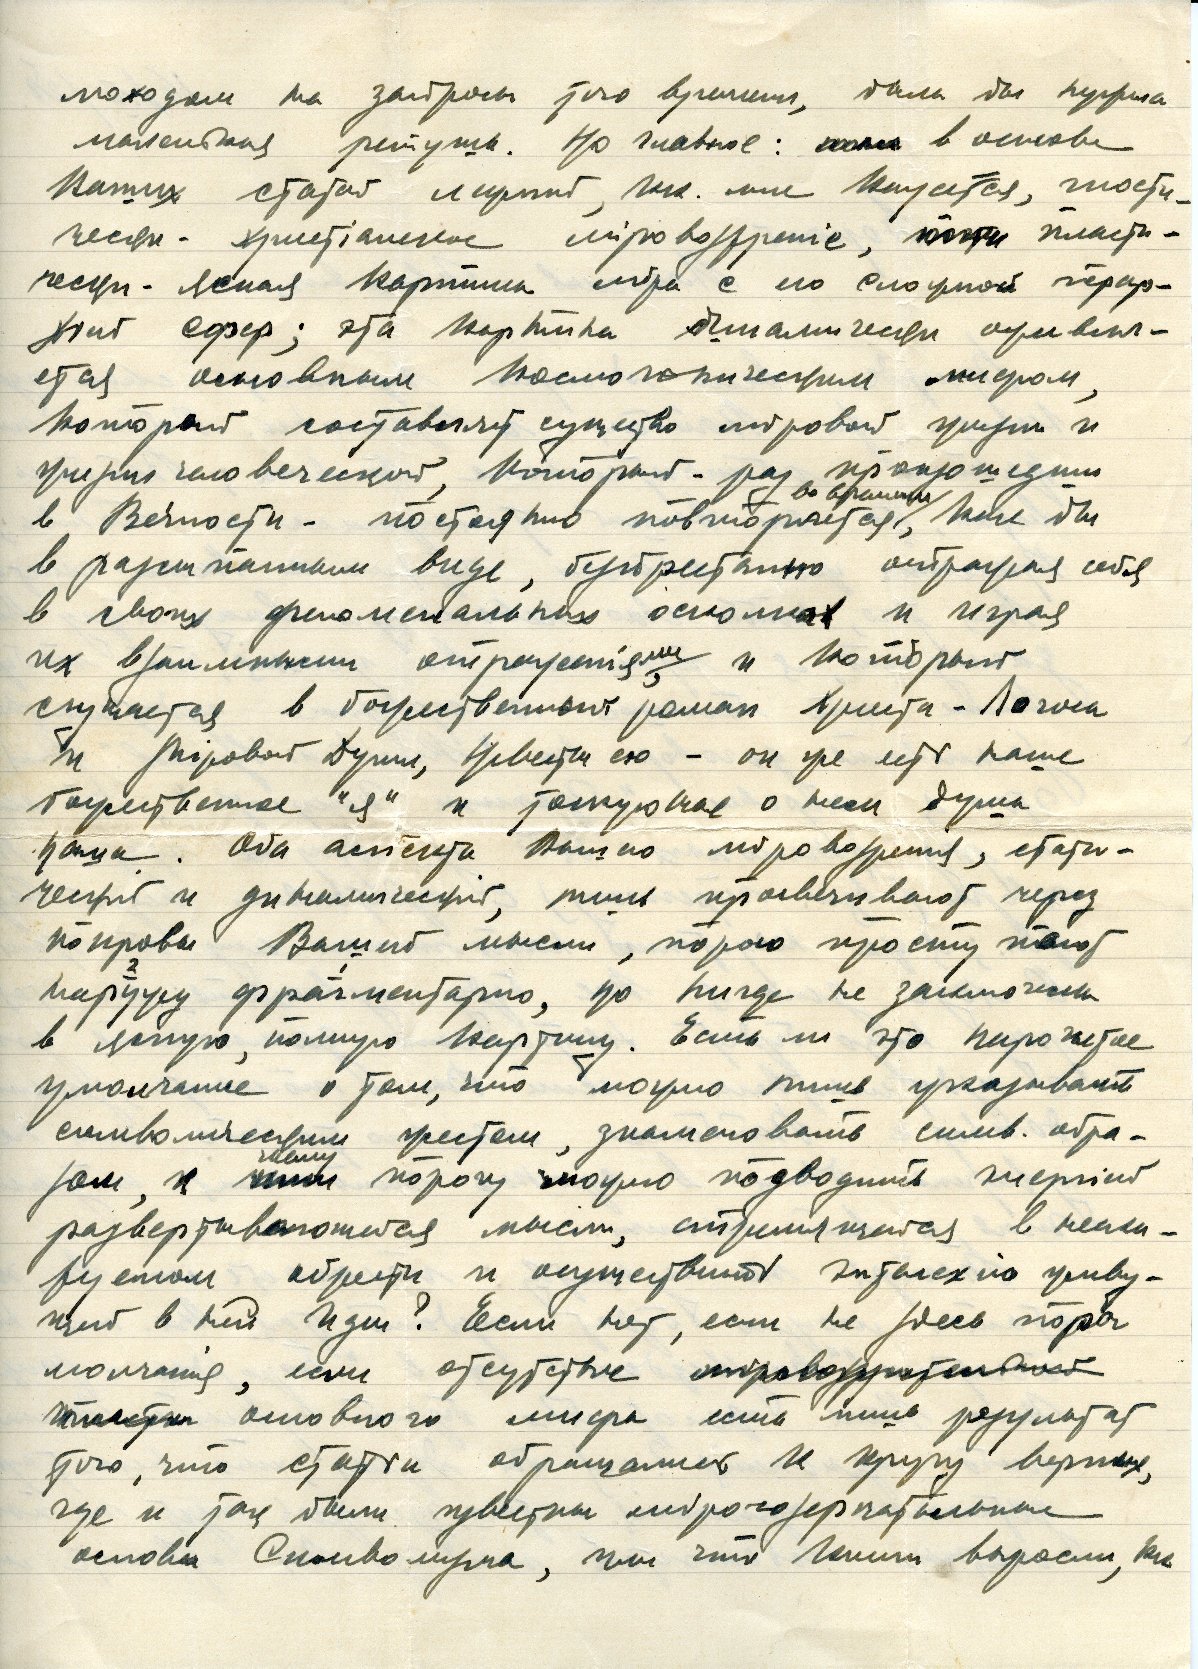 моходом на запросы того времени, была бы нужна
маленькая ретушь. Но главное: в основе
Ваших статей лежит, как мне кажется, гности-
чески-христіанское міровоззреніе, пласти-
чески-ясная картина міра с его сложной іерар-
хіей сфер; эта картина динамически оживля-
ется основным космогоническим мифом,
который составляет существо міровой жизни и
жизни человеческой, который - раз происшедши
в Вечности - постоянно повторяется во времени, как бы
в распыленном виде, безпрестанно отражая себя
в своих феноменальных осколках и играя
их взаимными отраженіями, и который
сгущается в божественный роман Христа-Логоса
и Міровой Души, Невесты его - он же есть наше
божественное "я" и тоскующая о нем душа
наша. Оба аспекта Вашего міровоззрения, стати-
ческій и динамическій, лишь просвечивают через
покровы Вашей мысли, порою проступают
наружу фрагментарно, но нигде не заключены
в ясную, полную картину. Есть ли это нарочитое
умолчание о том, что можно лишь указывать
символическим жестом, знаменовать симв. обра-
зом, и к чему порогу можно подводить энергией
развертывающейся мысли, стремящейся в
обрести и осуществить энтелехію живу-
щей в ней идеи? Если нет, если не здесь порог
молчанія, если отсутствие
основного мифа есть лишь результат
того, что статьи обращались к кругу верных,
где и так были известны міросозерцательные
основы Символизма, или что книги выросли, как